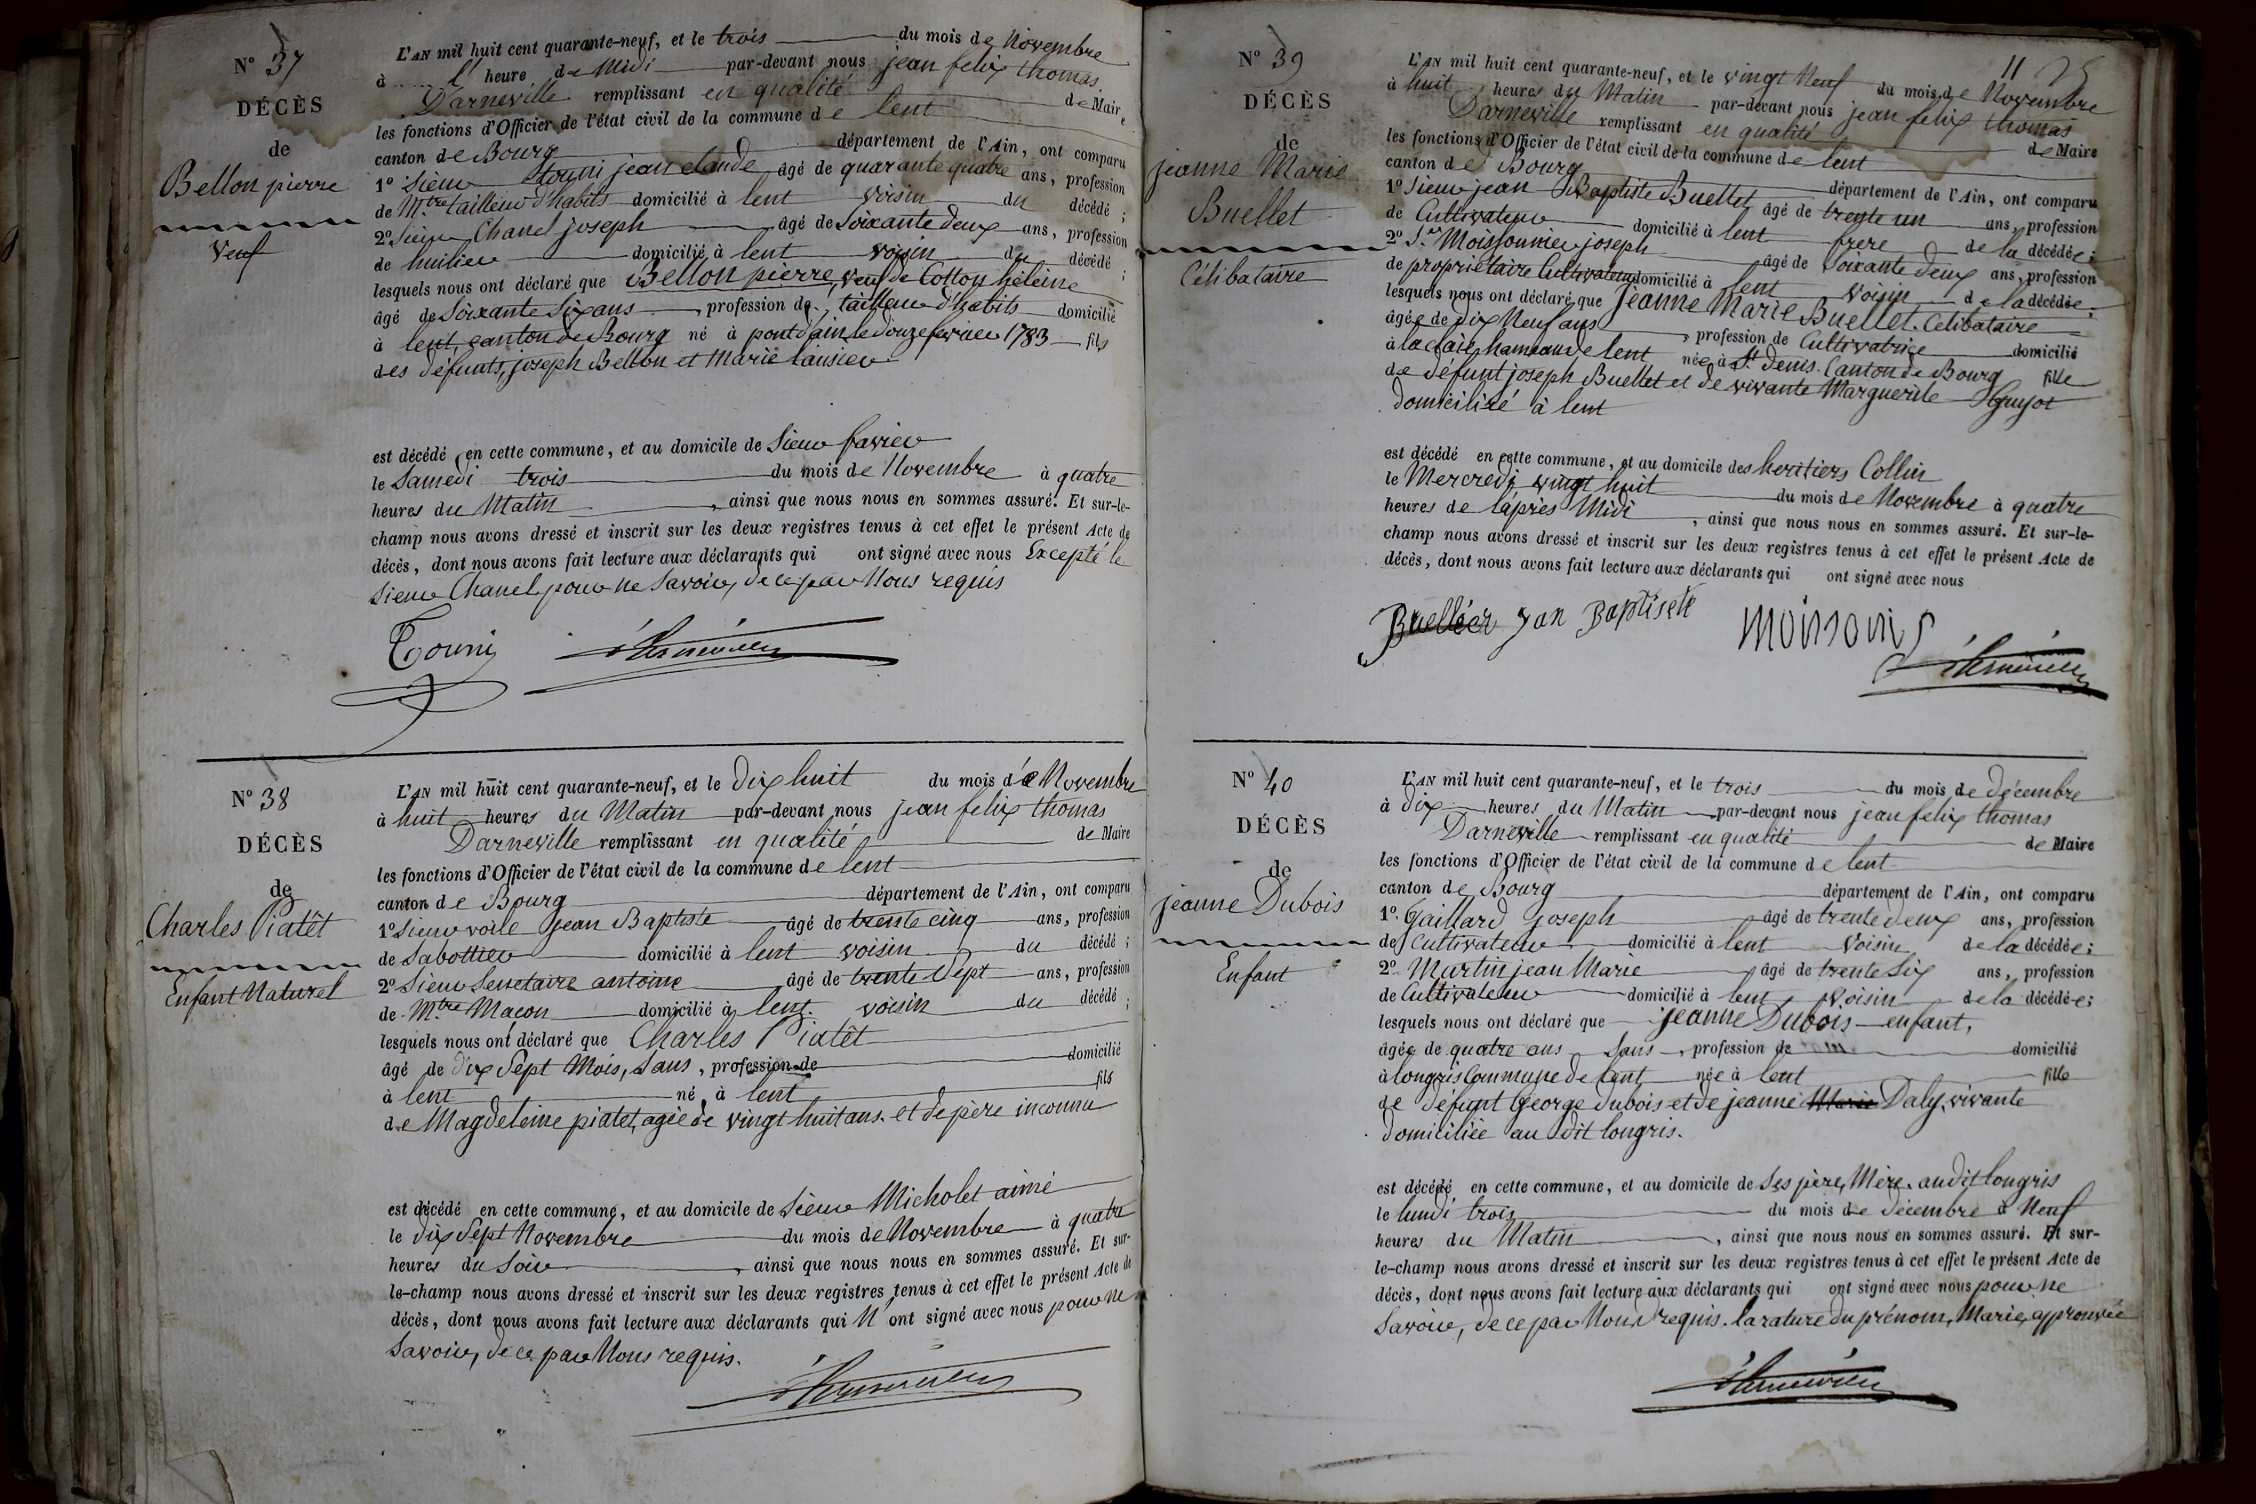 N° 37
DÉCÈS
de
Bellon pierre
veuf
L'AN mil huit cent quarante-neuf, et le trois du mois de Novembre
à l' heure de Midi par-devant nous jean felix thomas
Darneville remplissant en qualité de Maire
les fonctions d'Officier de l'état civil de la commune de lent
canton de Bourg département de l'Ain, ont comparu
1° Sieur touni jean claude âgé de quarante quatre ans, profession
de Mtre tailleur d'habits domicilié à lent voisin du décédé ;
2° Sieur Chanel joseph âgé de Soixante deux ans, profession
de huilier domicilié à lent voisin du décédé ;
lesquels nous ont déclaré que Bellon pierre, veuf de Cotton héleine
âgé de Soixante Six ans, profession de tailleur d'habits domicilié
à lent, canton de Bourg né à pont d'ain le douze fevrier 1783 fils
des défunts, joseph Bellon et Marie
est décédé en cette commune, et au domicile de Sieur favier
le Samedi trois du mois de Novembre à quatre
heures du Matin, ainsi que nous nous en sommes assuré. Et sur-le-
champ nous avons dressé et inscrit sur les deux registres tenus à cet effet le présent Acte de
décès, dont nous avons fait lecture aux déclarants qui ont signé avec nous Excepté le
Sieur Chanel pour ne Savoir, de ce par Nous requis
Touni
N° 38
DÉCÈS
de
Charles Piatêt
Enfant Naturel
L'AN mil huit cent quarante-neuf, et le dix huit du mois de Novembre
à huit heures du Matin par-devant nous jean felix thomas
Darneville remplissant en qualité de Maire
les fonctions d'Officier de l'état civil de la commune de lent
canton de Bourg département de l'Ain, ont comparu
1° Sieur voile jean Baptiste âgé de trente cinq ans, profession
de Sabottier domicilié à lent voisin du décédé ;
2° Sieur Senetaire antoine âgé de trente Sept ans, profession
de Mtre Maçon domicilié à lent voisin du décédé ;
lesquels nous ont déclaré que Charles Piatêt
âgé de dix Sept Mois, Sans, profession de domicilié
à lent né à lent fils
de Magdeleine piatet, agée de vingt huit ans. et de père inconnu
est décédé en cette commune, et au domicile de Sieur Micholet aimé
le dix Sept Novembre du mois de Novembre à quatre
heures du Soir, ainsi que nous nous en sommes assuré. Et sur-
le-champ nous avons dressé et inscrit sur les deux registres tenus à cet effet le présent Acte de
décès, dont nous avons fait lecture aux déclarants qui N'ont signé avec nous pour ne
Savoir, de ce par Nous requis.
11
N° 39
DÉCÈS
de
jeanne Marie
Buellet
Célibataire
L'AN mil huit cent quarante-neuf, et le vingt Neuf du mois de Novembre
à huit heures du Matin par-devant nous jean felix thomas
Darneville remplissant en qualité de Maire
les fonctions d'Officier de l'état civil de la commune de lent
canton de Bourg département de l'Ain, ont comparu
1° Sieur jean Baptiste Buellet âgé de trente un ans, profession
de Cultivateur domicilié à lent frere de la décédée ;
2° Sr Moissonnier joseph âgé de Soixante deux ans, profession
de propriétaire Cultivateur domicilié à lent Voisin de la décédée ;
lesquels nous ont déclaré que Jeanne Marie Buellet. Celibataire
âgée de dix Neuf ans, profession de Cultivatrice domicilié
à hameau de lent née à St denis. Canton de Bourg fille
de défunt joseph Buellet et de vivante Marguerite Guyot
domiciliée à lent
est décédé en cette commune, et au domicile des heritiers Collin
le Mercredi vingt huit du mois de Novembre à quatre
heures de l'après Midi, ainsi que nous nous en sommes assuré. Et sur-le-
champ nous avons dressé et inscrit sur les deux registres tenus à cet effet le présent Acte de
décès, dont nous avons fait lecture aux déclarants qui ont signé avec nous
N° 40
DÉCÈS
de
jeanne Dubois
Enfant
L'AN mil huit cent quarante-neuf, et le trois du mois de décembre
à dix heures du Matin par-devant nous jean felix thomas
Darneville remplissant en qualité de Maire
les fonctions d'Officier de l'état civil de la commune de lent
canton de Bourg département de l'Ain, ont comparu
1°. Gaillard joseph âgé de trente deux ans, profession
de Cultivateur domicilié à lent Voisin de la décédée ;
2° Martin jean Marie âgé de trente Six ans, profession
de Cultivateur domicilié à lent Voisin de la décédée ;
lesquels nous ont déclaré que jeanne Dubois enfant,
âgée de quatre ans Sans, profession de domicilié
à longris Commune de lent née à lent fille
de défunt George dubois et de jeanne Marie Daly, vivante
domiciliée au dit longris.
est décédé en cette commune, et au domicile de Ses père, Mère. au dit longris
le lundi trois du mois de decembre à Neuf
heures du Matin, ainsi que nous nous en sommes assuré. Et sur-
le-champ nous avons dressé et inscrit sur les deux registres tenus à cet effet le présent Acte de
décès, dont nous avons fait lecture aux déclarants qui ont signé avec nous pour ne
Savoir, de ce par Nous requis. la rature du prénom, Marie, approuvée